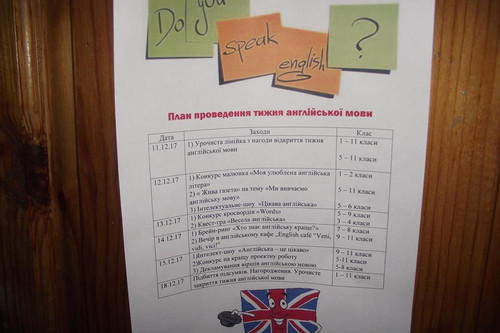 Do you
speak
english
?
План проведення тижня англійської мови
Дата Заходи Клас
11.12.17 1) Урочиста лінійка з нагоди відкриття тижня 1 – 11 класи
англійської мови
5 – 11 класи
12.12.17 1) Конкурс малюнка «Моя улюблена англійська 1 – 2 класи
літера»
2) « Жива газета» на тему «Ми вивчаємо 5 – 11 класи
англійську мову»
3) Інтелектуальне-шоу «Цікава англійська» 5 – 6 класи
13.12.17 1) Конкурс кросвордів «Words» 5 – 9 класи
2) Квест-гра «Весела англійська» 3 – 4 класи
14.12.17 1) Брейн-ринг «Хто знає англійську краще?» 7 – 8 класи
2) Вечір в англійському кафе „English café "Veni, 9 – 11 класи
vidi, vici!"
15.12.17 1)Інтелект-шоу «Англійська – це цікаво» 9 – 11 класи
2)Конкурс на кращу проектну роботу 5-11 класи
3) Декламування віршів англійською мовою 5-8 класи
18.12.17 Підбиття підсумків. Нагородження. Урочисте 1 – 11 класи
закриття тижня англійської мови